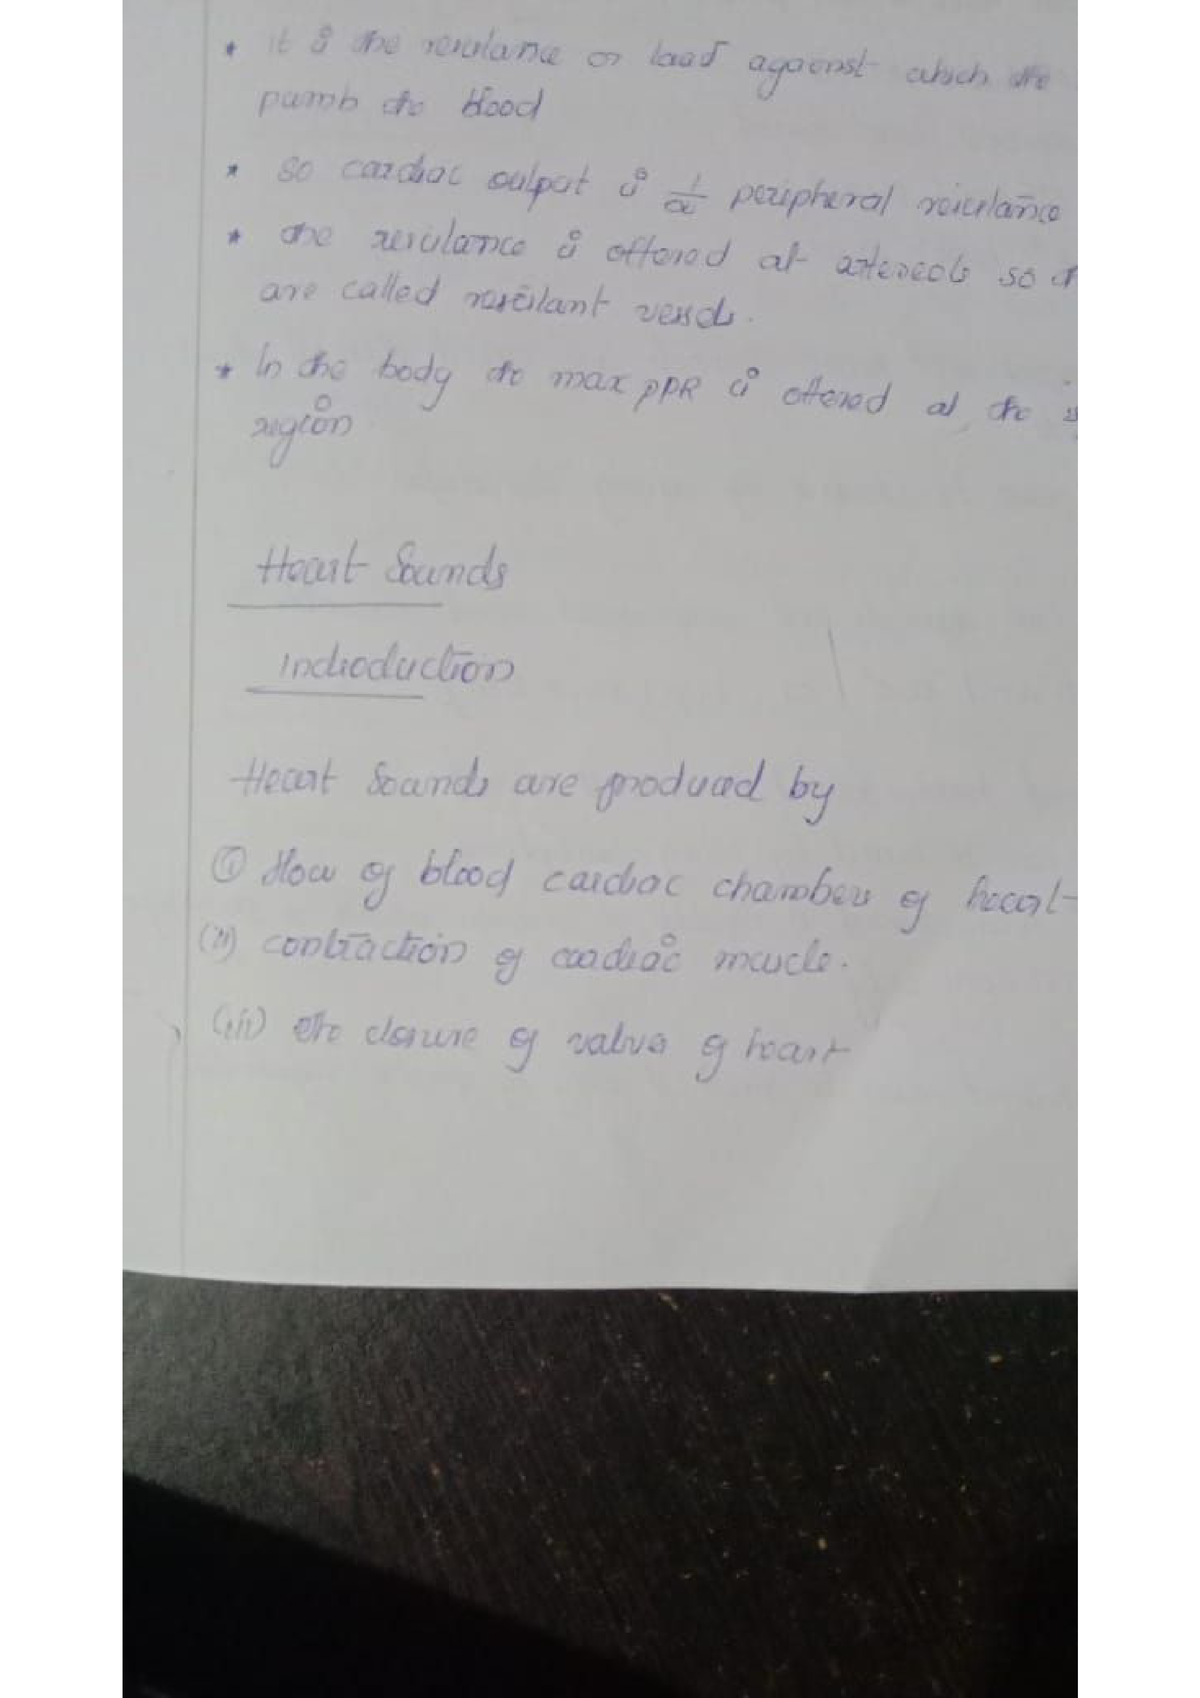 * it is the resistance or load against which the
pumb the blood
* so cardiac output is 1/α peripheral resistance
* the resistance is offered at artercols so
are called resistant vessels.
* In the body the max PPR is offered at the
region
Heart Sounds
Introduction
Heart Sounds are produced by
(i) flow of blood cardiac chambers of heart
(ii) contraction of cardiac muscle.
(iii) the closure of valves of heart